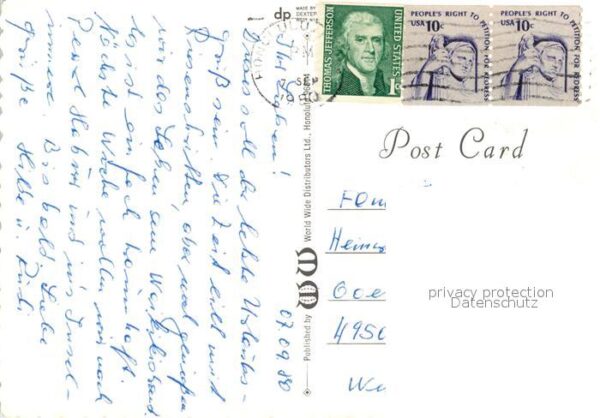 Ihr Lieben!
Dieses soll der letzte Urlaubs-
gruß sein. Die Zeit eilt mit
Riesenschritten, aber noch genießen
wir das Leben am Waikiki Strand
einfach traumhaft.
Nächste Woche wollen wir nach
Pearl Harbour und ins Insel-
innere. Bis bald, liebe
Grüße Hilde u. Rudi
07.09.80
MADE BY
DEXTER
dp
Published by
World Wide Distributors Ltd., Honolulu
SEP
THOMAS JEFFERSON
UNITED STATES
1c
PEOPLE'S RIGHT TO PETITION FOR REDRESS
USA 10c
PEOPLE'S RIGHT TO PETITION FOR REDRESS
USA 10c
Post Card
Fam
Heinz
495
privacy protection
Datenschutz